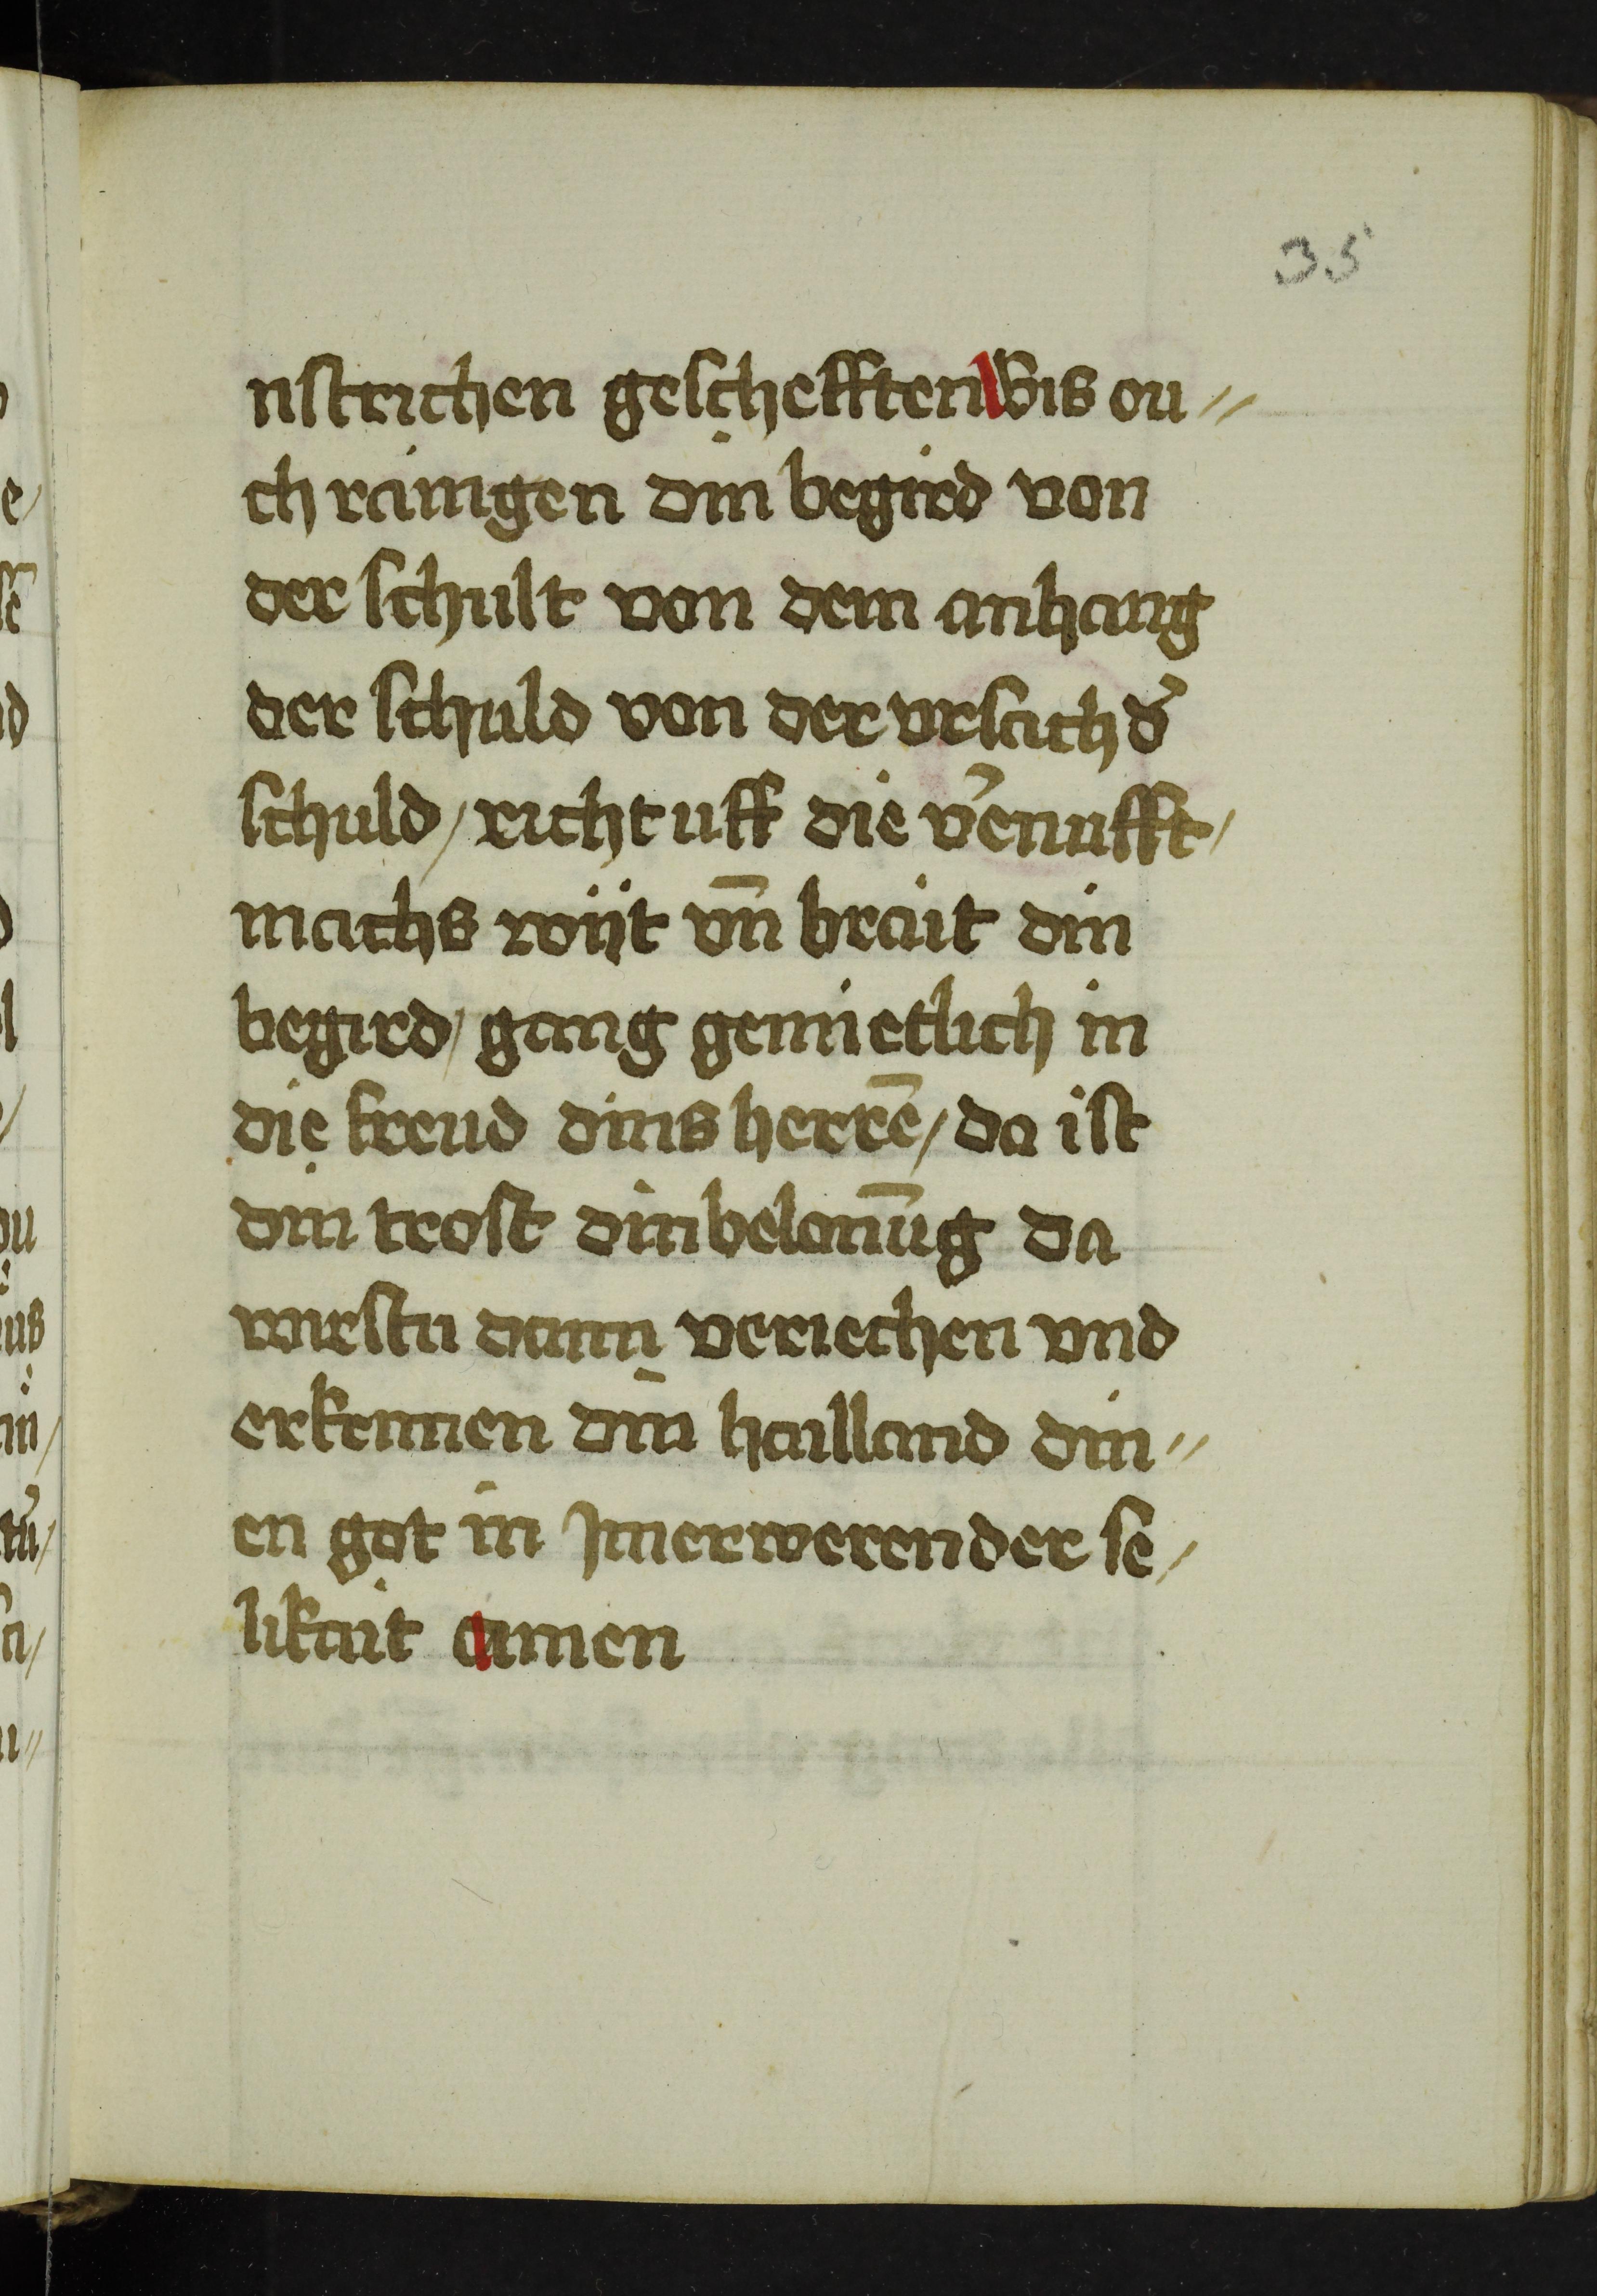 35
nstrichen geschefften Wis ou//
ch rainigen din begird von
der schult von dem anhang
der schuld von der vrsach d͛
schuld / richt uff die v͛enufft /
machs wijt vn̄ brait din
begird / gang gemietlich in
die freud dins herrē / da ist
din trost din belonūg da
wirstu dann veriechen vnd
erkennen din hailland din//
en got in Jmerwerender se/
likait amen